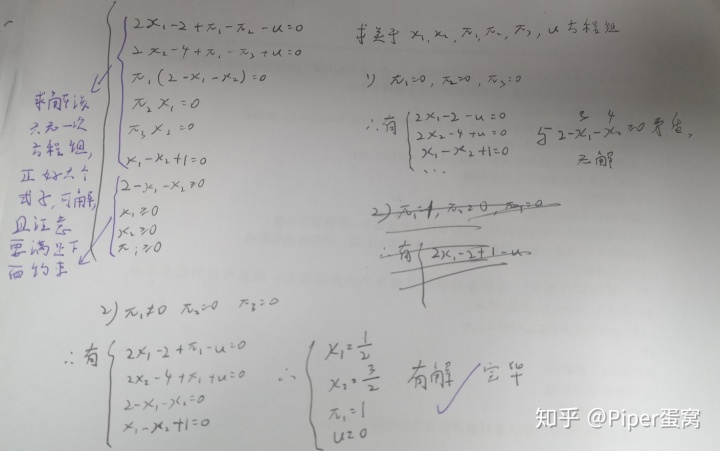 2x₁-2+π₁-π₂-u=0
2x₂-4+π₁-π₃+u=0
π₁(2-x₁-x₂)=0
π₂x₁=0
π₃x₂=0
x₁-x₂+1=0
2-x₁-x₂≥0
x₁≥0
x₂≥0
πᵢ≥0
求解该
六元一次
方程组,
正好六个
式子,可解,
且注意
要满足下
面约束
求关于 x₁, x₂, π₁, π₂, π₃, u 方程组
1) π₁=0, π₂=0, π₃=0
∴有
2x₁-2-u=0
2x₂-4+u=0
x₁-x₂+1=0
...
与 2-x₁-x₂≥0 矛盾,
3 4
无解
2) π₁=1, π₂=0, π₃=0
∴有 2x₁-2+1-u
2) π₁≠0 π₂=0 π₃=0
∴有
2x₁-2+π₁-u=0
2x₂-4+π₁+u=0
2-x₁-x₂=0
x₁-x₂+1=0
∴
x₁=1/2
x₂=3/2
π₁=1
u=0
有解 完毕
知乎 @Piper蛋窝